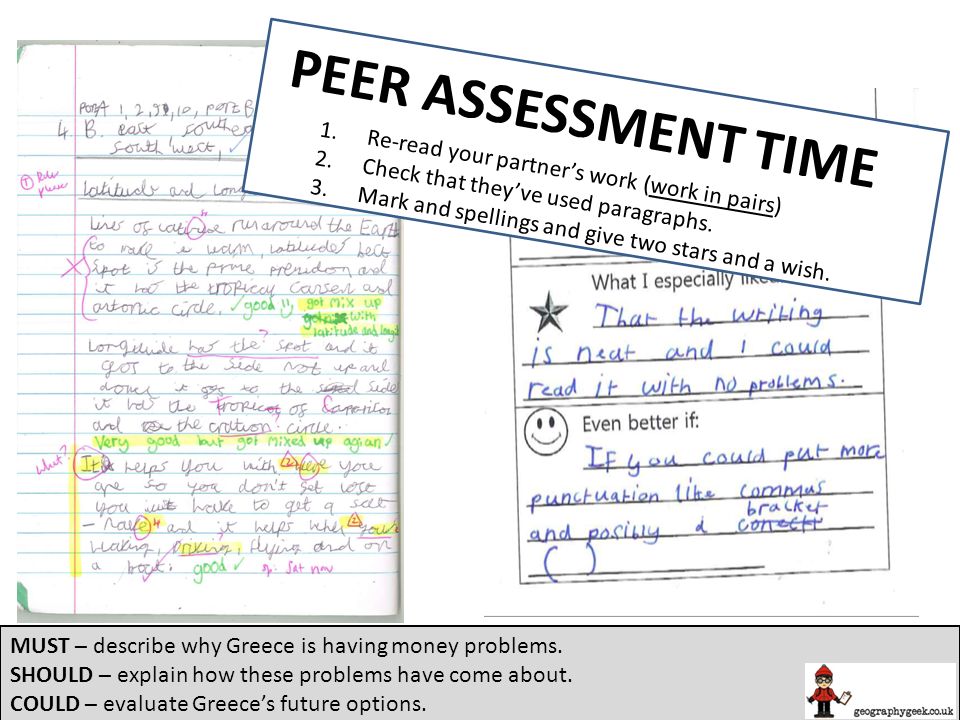 PEER ASSESSMENT TIME
1. Re-read your partner's work (work in pairs)
2. Check that they've used paragraphs.
3. Mark and spellings and give two stars and a wish.
PORTA 1, 2, 9, 10, PORT B
4. B. east, south
south west,
Latitude and Long
Lines of run around the Earth
to make a warm, latitudes best
spot is the prime and
it has the and
circle. good
got mix up
with
latitude and longit
Longitude has the spot and it
gos to the side not up and
down it gos to the side
it has the Tropics of
and the circle.
Very good but got mixed up agian
what?
It helps you with you
are so you don't get lost
you make to get a sat
- nave and it helps when you're
walking, driving, flying and on
a boat. good sp. Sat nav
What I especially like
That the writing
is neat and I could
read it with no problems.
Even better if:
If you could put more
punctuation like commas
bracket
and posibly a
( )
MUST – describe why Greece is having money problems.
SHOULD – explain how these problems have come about.
COULD – evaluate Greece's future options.
geographygeek.co.uk